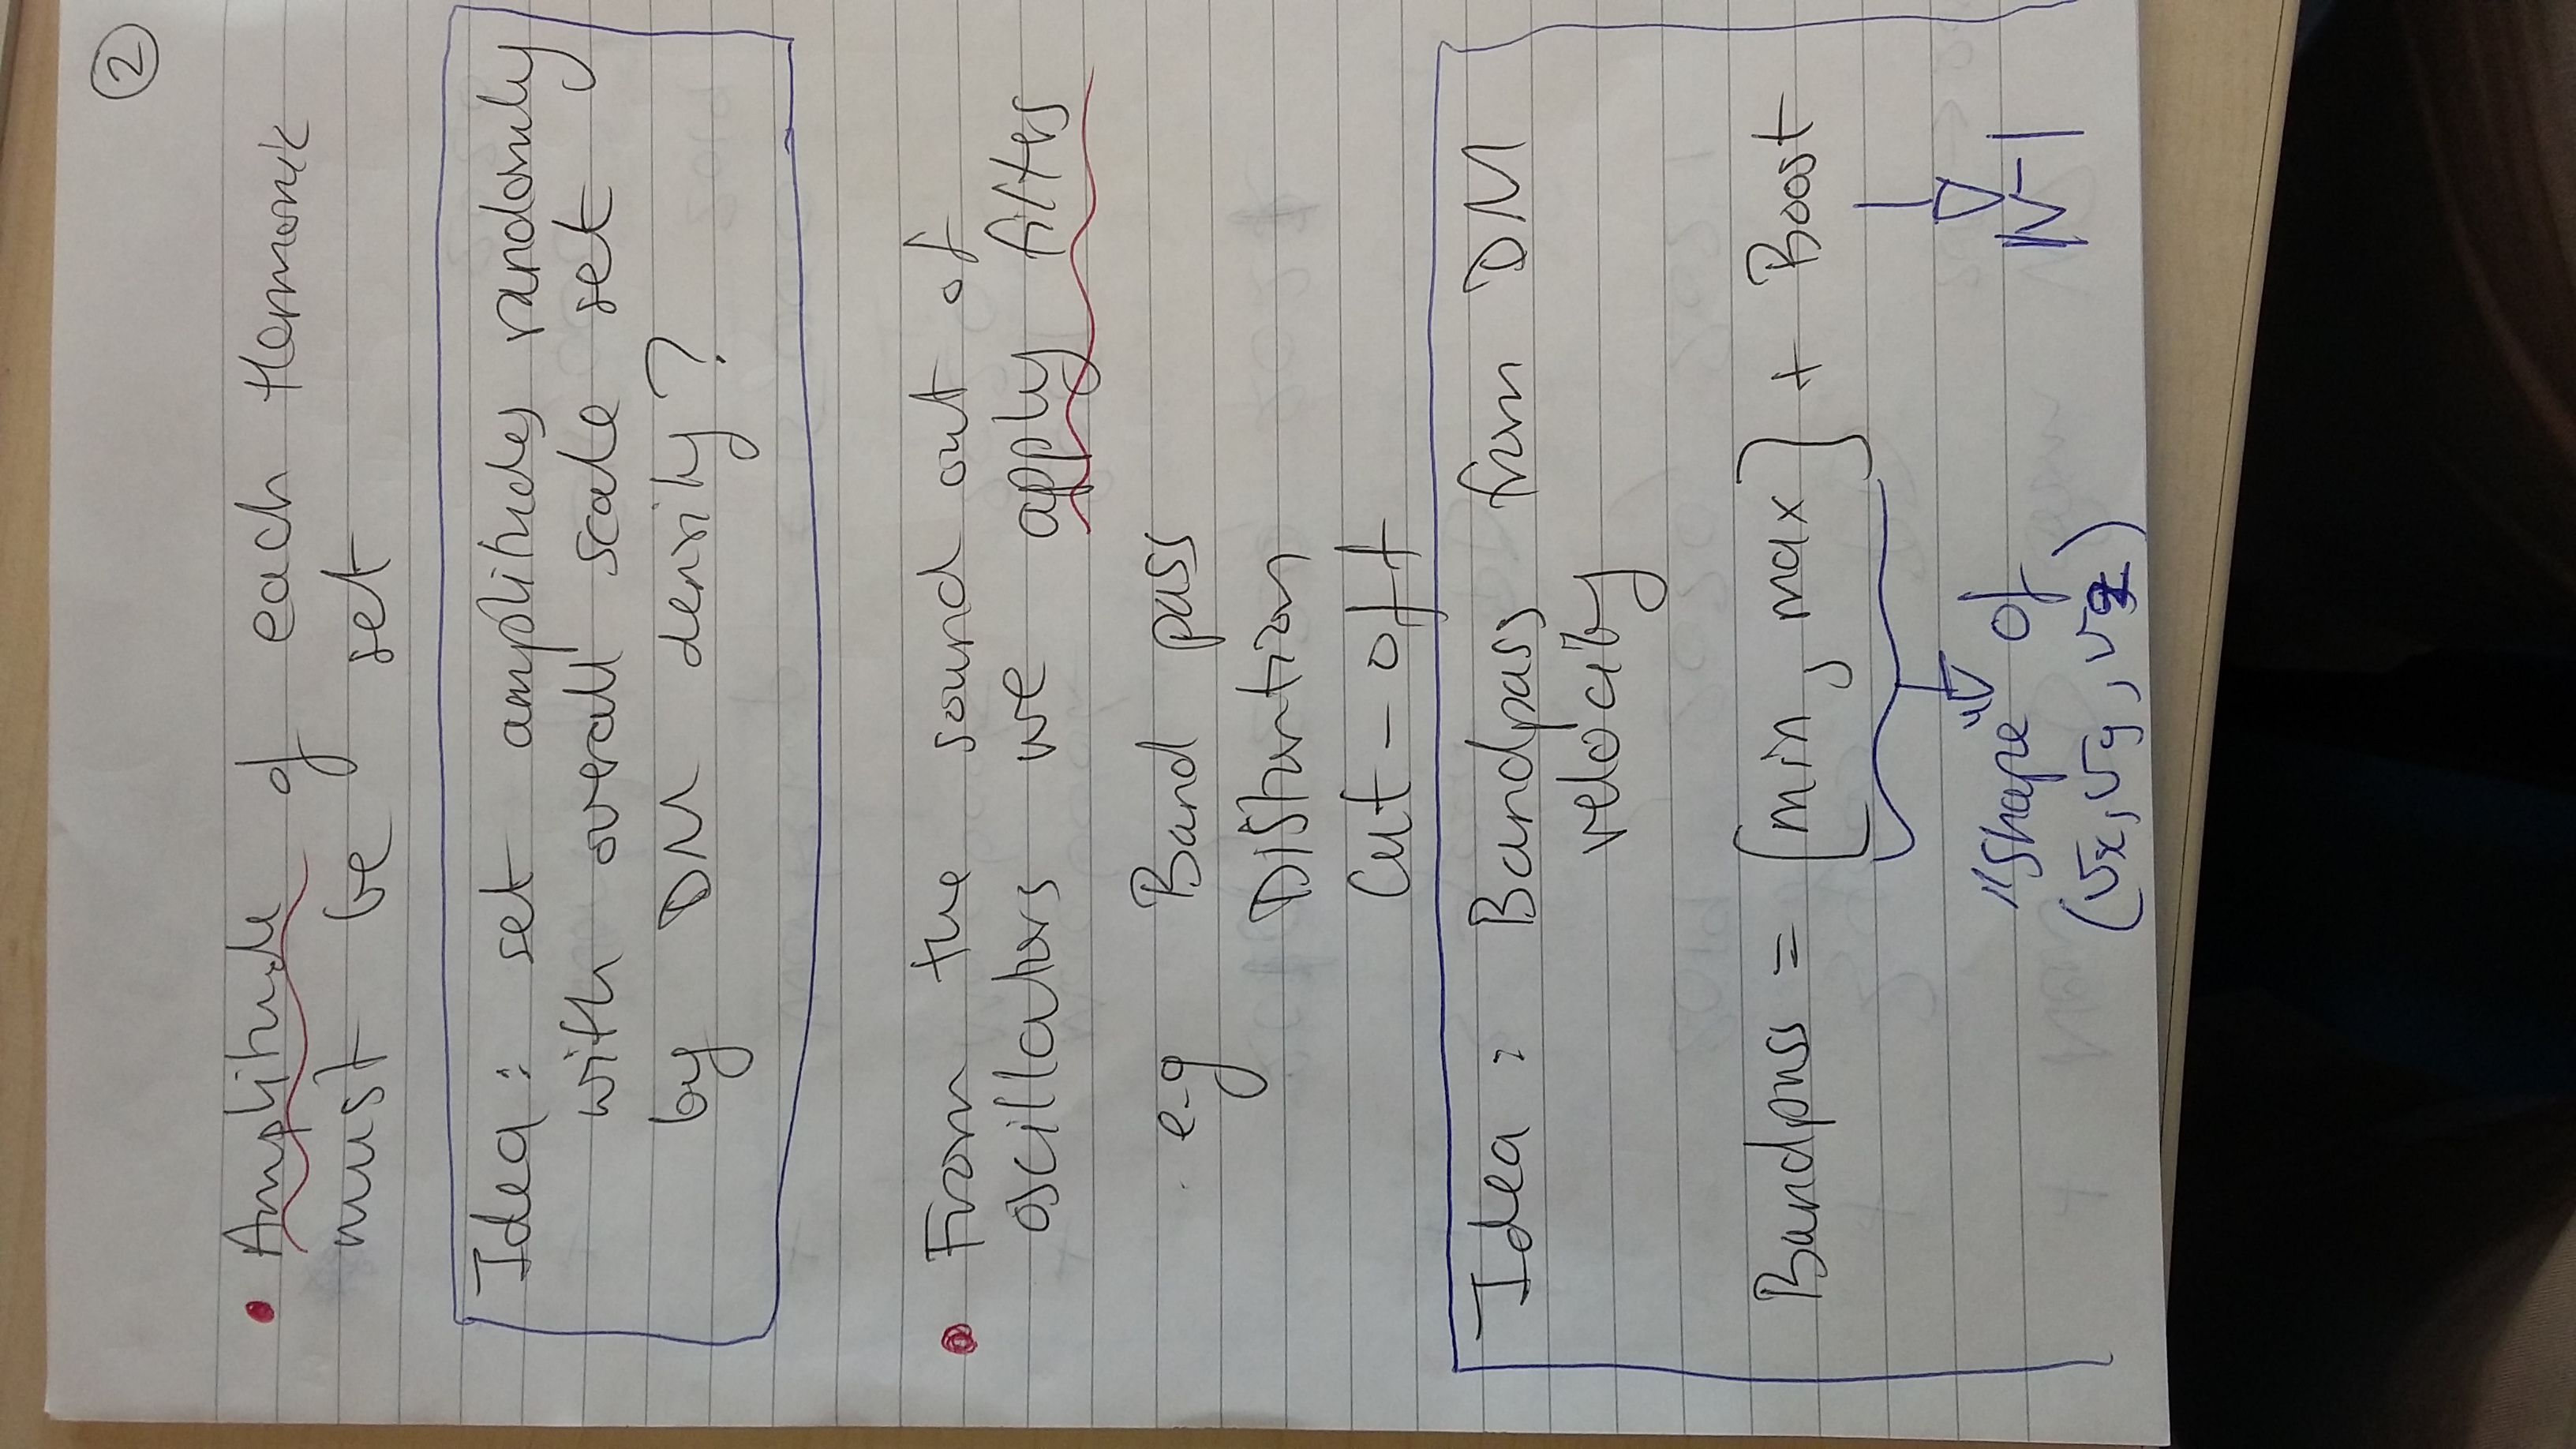 2
• Amplitude of each Harmonic
must be set
Idea : set amplitudes randomly
with overall scale set
by DM density?
• From the sound out of
oscillators we apply filters
e-g Band pass
Distortion
Cut-off
Idea : Bandpass from DM
velocity
Bandpass = [min, max] + Boost
"Shape" of |v|
(vx, vy, vz)